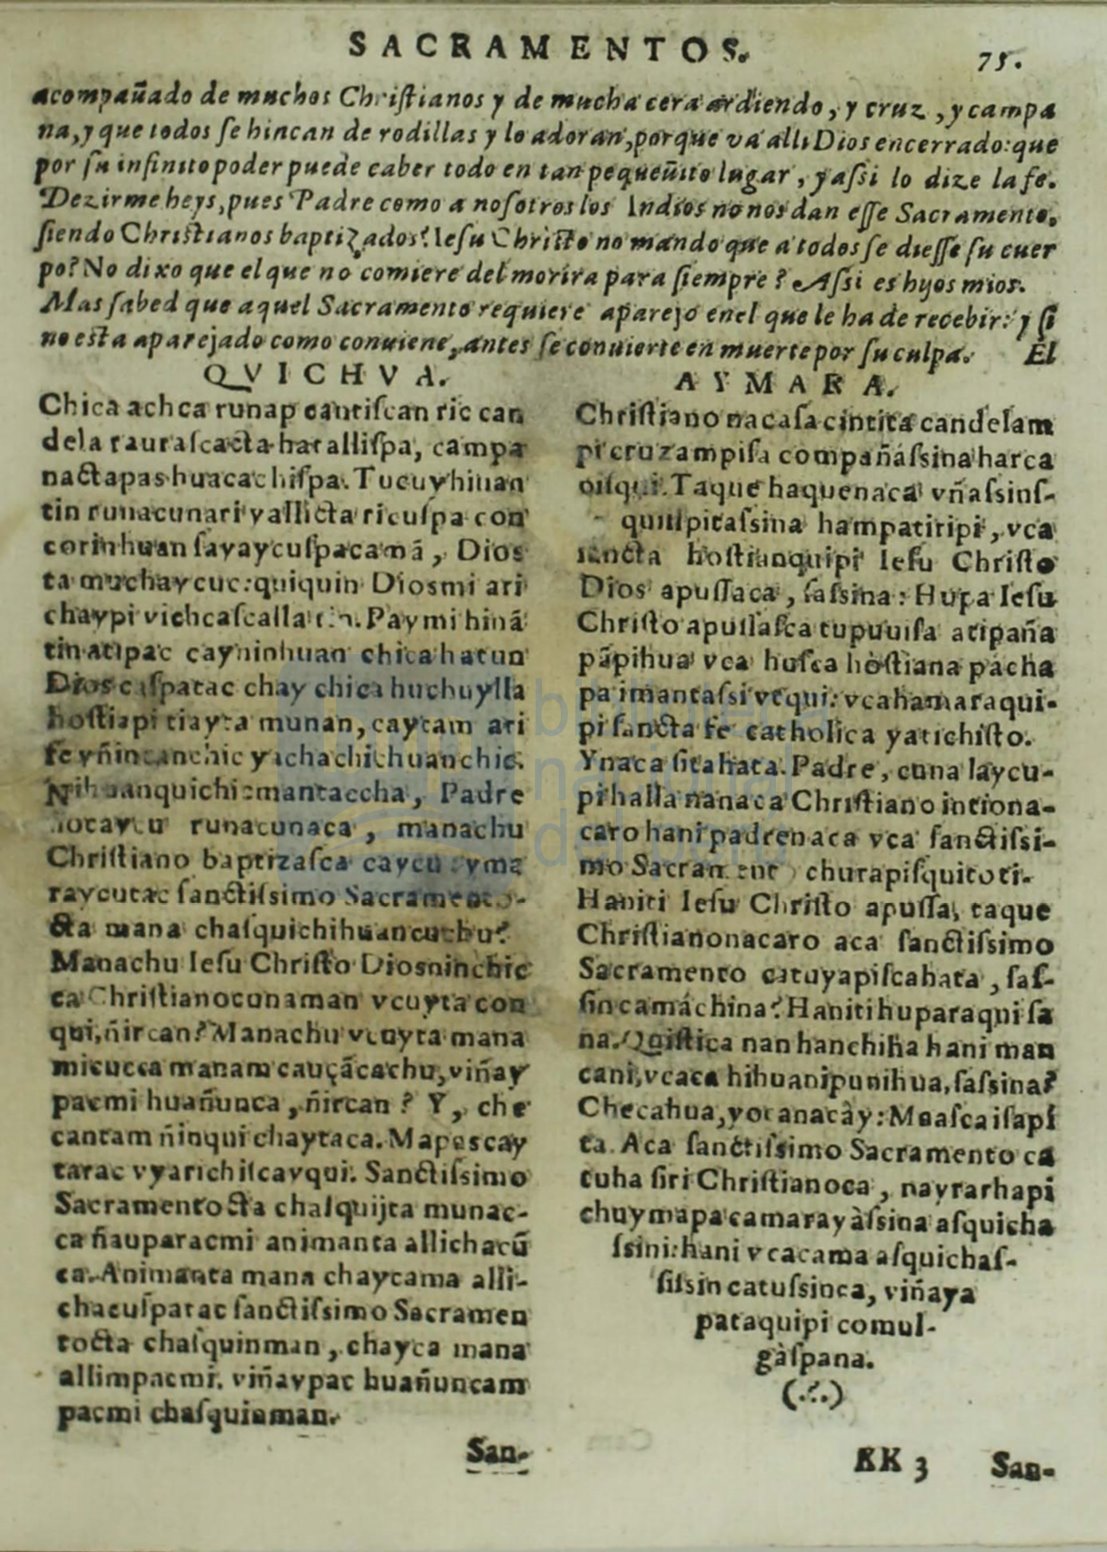 SACRAMENTOS.
75.
acompañado de muchos Christianos y de mucha cera ardiendo, y cruz, y campa
na, y que todos ſe hincan de rodillas y lo adoran, porque va alli Dios encerrado: que
por ſu infinito poder puede caber todo en tan pequeñito lugar, y aſsi lo dize la fe.
Dezirme heys, pues Padre como a noſotros los Indios no nos dan eſſe Sacramento,
ſiendo Chriſtianos baptizados? Ieſu Chriſto no mando que a todos ſe dieſſe ſu cuer
po? No dixo que el que no comiere del morira para ſiempre? Aſsi es hijos mios.
Mas ſabed que aquel Sacramento requiere aparejo enel que le ha de recebir: y ſi
no eſta aparejado como conuiene, antes ſe conuierte en muerte por ſu culpa. El
QVICHVA.
Chica achca runap cautiſcan ric can
dela rauraſcacta hatalliſpa, campa
nactapas huacachiſpa. Tucuyhinan
tin runacunari yallicta ricuſpa con
corinhuan ſayaycuſpacamā, Dios
ta muchaycuc: quiquin Diosmi ari
chaypi vichcaſcalla Paymi hinā
tin atipac cayninhuan chica hatun
Dios caſpatac chay chica huchuylla
hoſtiapi tiayta munan, caytam ari
fe yñincanchic yachachihuanchic.
Nihuanquichi: mantaccha, Padre
ñocaycu runacunaca, manachu
Chriſtiano baptizaſca caycu: yma
raycutac ſanctiſsimo Sacramento-
cta mana chaſquichihuancuchu?
Manachu Ieſu Chriſto Diosninchic
ca Chriſtianocunaman vcuyta con
qui, ñircan? Manachu vcuyta mana
micucca manam cauçācachu, viñay
pacmi huañunca, ñircan? Y, che
cantam ñinqui chaytaca. Mapascay
tarac vyarichiſcayqui. Sanctiſsimo
Sacramentocta chaſquijta munac-
ca ñauparacmi animanta allichacū
ca. Animanta mana chaycama alli-
chacuſpatac ſanctiſsimo Sacramen
tocta chaſquinman, chayca mana
allimpacmi. viñaypac huañuncam
pacmi chaſquinman.
San-
AYMARA.
Chriſtiano nacaſa cintita candelam
pi cruzampiſa compañáſsina harca
oiſqui. Taque haquenaca vñaſsinſ-
quiuſpitaſsina hampatiripi, vca
ſancta hoſtianquipi Ieſu Chriſto
Dios apuſſaca, ſaſsina: Hupa Ieſu
Chriſto apuſſaſca tupuuiſa atipaña
pāpihua vca huſca hòſtiana pácha
pa imantaſsi vtqui: vcahamaraqui-
pi ſancta fe catholica yatichiſto.
Ynaca ſitahata. Padre, cuna laycu-
pihalla nanaca Chriſtiano intiona-
caro hani padrenaca vca ſanctiſsi-
mo Sacrament churapiſquitoti.
Haniti Ieſu Chriſto apuſſa, taque
Chriſtianonacaro aca ſanctiſsimo
Sacramento catuyapiſcahata, ſaſ-
ſin camáchina? Haniti huparaqui ſa
na. Quiſtica nan hanchiha hani man
cani, vcaca hihuanipunihua, ſaſsina?
Checahua, yocanacày: Maaſca iſapi
ta. Aca ſanctiſsimo Sacramento ca
tuha ſiri Chriſtianoca, nayrarhapi
chuymapa camarayàſsina aſquicha
ſsini: hani vcacama aſquichaſ-
ſiſsin catuſsinca, viñaya
pataquipi comul-
gàſpana.
(.·.)
KK 3
San-